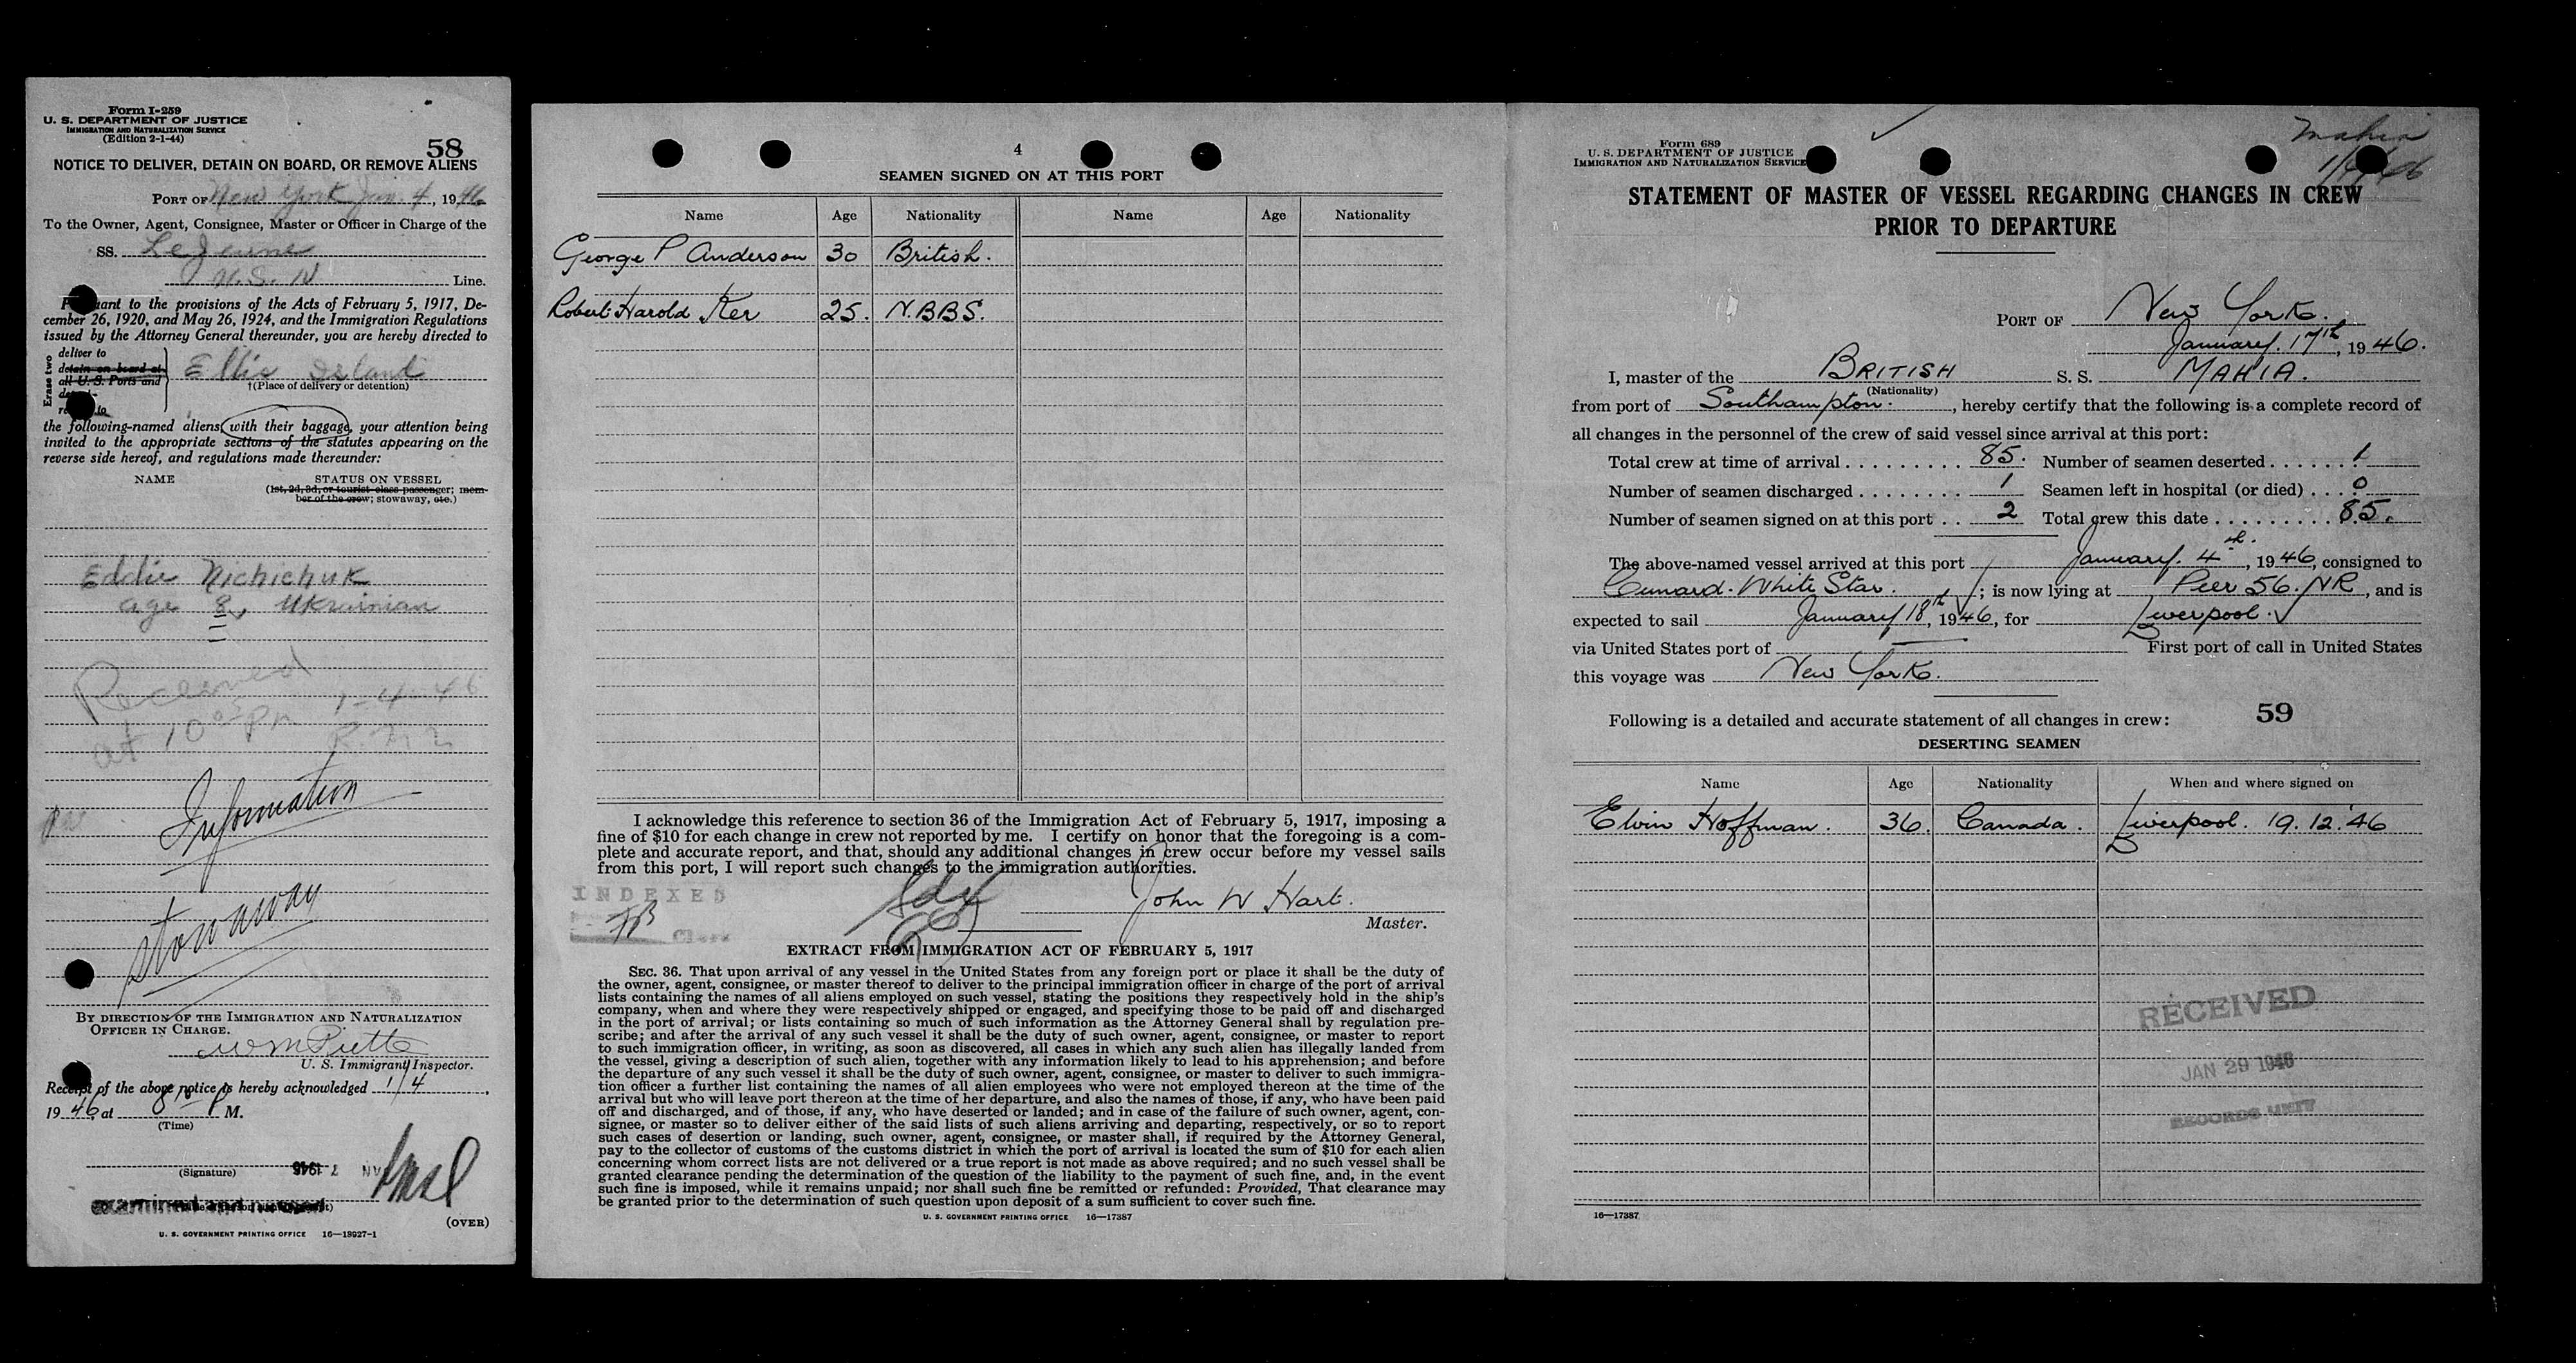 Form I-259
U. S. DEPARTMENT OF JUSTICE
IMMIGRATION AND NATURALIZATION SERVICE
(Edition 2-1-44)
58
NOTICE TO DELIVER, DETAIN ON BOARD, OR REMOVE ALIENS
PORT OF New York Jan. 4, 1946
To the Owner, Agent, Consignee, Master or Officer in Charge of the
SS. LeJeune
U.S.N Line.
Pursuant to the provisions of the Acts of February 5, 1917, De-
cember 26, 1920, and May 26, 1924, and the Immigration Regulations
issued by the Attorney General thereunder, you are hereby directed to
Erase two
deliver to
detain on board at
all U. S. Ports and
Ellis Island
†(Place of delivery or detention)
the following-named aliens, with their baggage, your attention being
invited to the appropriate sections of the statutes appearing on the
reverse side hereof, and regulations made thereunder:
NAME STATUS ON VESSEL
(1st, 2d, 3d, or tourist class passenger; mem-
ber of the crew; stowaway, etc.)
Eddie Nichichuk
age 8, Ukrainian
Received 1-4-46
at 10 05 PM
Information
Stowaway
BY DIRECTION OF THE IMMIGRATION AND NATURALIZATION
OFFICER IN CHARGE.
U. S. Immigrant Inspector.
Receipt of the above notice is hereby acknowledged 1/4,
1946, at 8 15 P M.
(Time)
(Signature)
JAN 7 1946
examined and
(OVER)
U. S. GOVERNMENT PRINTING OFFICE 16—18927-1
4
SEAMEN SIGNED ON AT THIS PORT
Name Age Nationality Name Age Nationality
George P Anderson 30 British.
Robert Harold Ker 25. N.BBS.
I acknowledge this reference to section 36 of the Immigration Act of February 5, 1917, imposing a
fine of $10 for each change in crew not reported by me. I certify on honor that the foregoing is a com-
plete and accurate report, and that, should any additional changes in crew occur before my vessel sails
from this port, I will report such changes to the immigration authorities.
INDEXED
Clerk
John W Hart.
Master.
EXTRACT FROM IMMIGRATION ACT OF FEBRUARY 5, 1917
SEC. 36. That upon arrival of any vessel in the United States from any foreign port or place it shall be the duty of
the owner, agent, consignee, or master thereof to deliver to the principal immigration officer in charge of the port of arrival
lists containing the names of all aliens employed on such vessel, stating the positions they respectively hold in the ship's
company, when and where they were respectively shipped or engaged, and specifying those to be paid off and discharged
in the port of arrival; or lists containing so much of such information as the Attorney General shall by regulation pre-
scribe; and after the arrival of any such vessel it shall be the duty of such owner, agent, consignee, or master to report
to such immigration officer, in writing, as soon as discovered, all cases in which any such alien has illegally landed from
the vessel, giving a description of such alien, together with any information likely to lead to his apprehension; and before
the departure of any such vessel it shall be the duty of such owner, agent, consignee, or master to deliver to such immigra-
tion officer a further list containing the names of all alien employees who were not employed thereon at the time of the
arrival but who will leave port thereon at the time of her departure, and also the names of those, if any, who have been paid
off and discharged, and of those, if any, who have deserted or landed; and in case of the failure of such owner, agent, con-
signee, or master so to deliver either of the said lists of such aliens arriving and departing, respectively, or so to report
such cases of desertion or landing, such owner, agent, consignee, or master shall, if required by the Attorney General,
pay to the collector of customs of the customs district in which the port of arrival is located the sum of $10 for each alien
concerning whom correct lists are not delivered or a true report is not made as above required; and no such vessel shall be
granted clearance pending the determination of the question of the liability to the payment of such fine, and, in the event
such fine is imposed, while it remains unpaid; nor shall such fine be remitted or refunded: Provided, That clearance may
be granted prior to the determination of such question upon deposit of a sum sufficient to cover such fine.
U. S. GOVERNMENT PRINTING OFFICE 16—17387
Form 689
U. S. DEPARTMENT OF JUSTICE
IMMIGRATION AND NATURALIZATION SERVICE
Mahia
STATEMENT OF MASTER OF VESSEL REGARDING CHANGES IN CREW
PRIOR TO DEPARTURE
PORT OF New York.
January. 17th, 1946.
I, master of the BRITISH S. S. MAHIA.
(Nationality)
from port of Southampton., hereby certify that the following is a complete record of
all changes in the personnel of the crew of said vessel since arrival at this port:
Total crew at time of arrival . . . . . . . . . . 85. Number of seamen deserted . . . . . . 1
Number of seamen discharged . . . . . . . . 1 Seamen left in hospital (or died) . . . 0
Number of seamen signed on at this port . . 2 Total crew this date . . . . . . . . . 85.
The above-named vessel arrived at this port January. 4th., 1946, consigned to
Cunard. White Star. ; is now lying at Peer 56. NR, and is
expected to sail January 18th, 1946, for Liverpool.
via United States port of First port of call in United States
this voyage was New York.
59
Following is a detailed and accurate statement of all changes in crew:
DESERTING SEAMEN
Name Age Nationality When and where signed on
Elvin Hoffman. 36. Canada. Liverpool. 19. 12. '46
RECEIVED
JAN 29 1946
RECORDS UNIT
16—17387